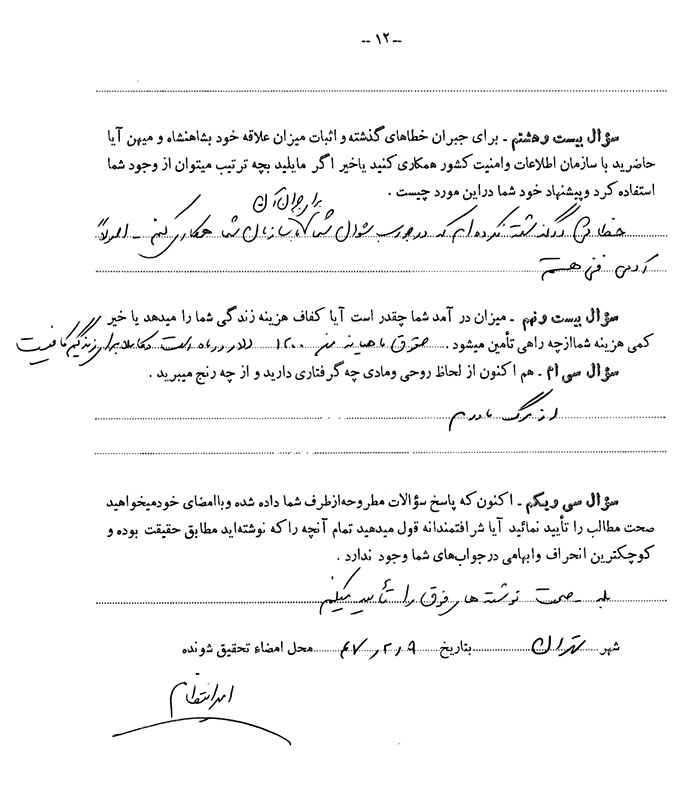 -- ۱۲ --
سؤال بیست و هشتم - برای جبران خطاهای گذشته و اثبات میزان علاقه خود بشاهنشاه و میهن آیا
حاضرید با سازمان اطلاعات وامنیت کشور همکاری کنید یاخیر اگر مایلید بچه ترتیب میتوان از وجود شما
استفاده کرد وپیشنهاد خود شما دراین مورد چیست .
برای جبران آن
خطائی در گذشته نکرده‌ام که در جواب سئوال شما با سازمان شما همکاری کنم - اصولاً
آدمی فنی هستم
سؤال بیست ونهم - میزان در آمد شما چقدر است آیا کفاف هزینه زندگی شما را میدهد یا خیر
کمی هزینه شماازچه راهی تأمین میشود . حقوق ماهیانه من ۱۲۰۰ دلار در ماه است که کاملا برای زندگیم کافیست
سؤال سی ام - هم اکنون از لحاظ روحی ومادی چه گرفتاری دارید و از چه رنج میبرید .
از مرگ مادرم
سؤال سی ویکم - اکنون که پاسخ سؤالات مطروحه‌ازطرف شما داده شده وباامضای خودمیخواهید
صحت مطالب را تأیید نمائید آیا شرافتمندانه قول میدهید تمام آنچه راکه نوشته‌اید مطابق حقیقت بوده و
کوچکترین انحراف وابهامی درجواب‌های شما وجود ندارد .
بله صحت نوشته های فوق را تأیید میکنم
شهر تهران بتاریخ ۴۷,۲,۹ محل امضاء تحقیق شونده
امیرانتظام